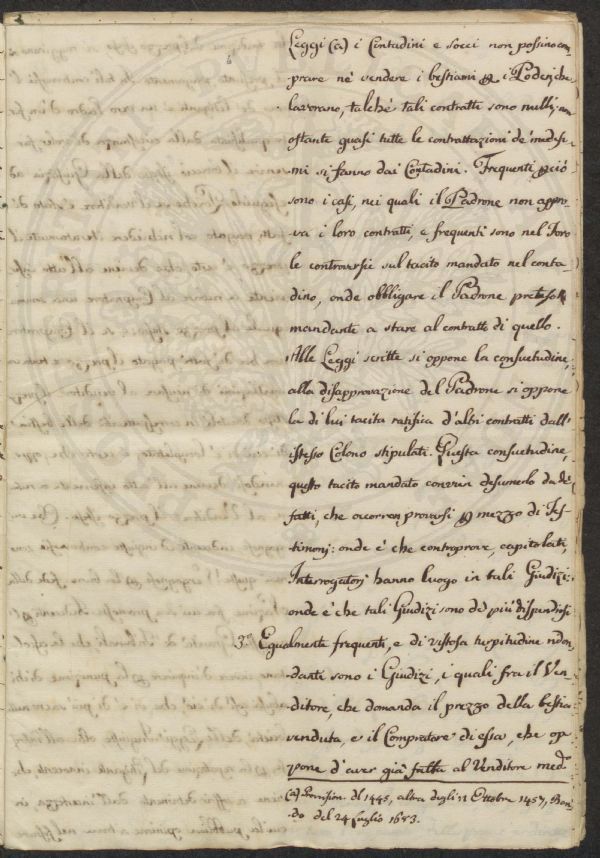 Leggi (a) i Contadini e socci non possino com-
prare nè vendere i bestiami per i Poderi, che
lavorano, talchè tali contratti sono nulli, non
ostante quasi tutte le contrattazioni de medesi-
mi si fanno dai Contadini. Frequenti perciò
sono i casi, nei quali il Padrone non appro-
va i loro contratti, e frequenti sono nel Foro
le controversie sul tacito mandato nel conta-
dino, onde obbligare il Padrone preteso
mandante a stare al contratto di quello.
Alle Leggi scritte si oppone la consuetudine,
alla disapprovazione del Padrone si oppone
la di lui tacita ratifica d'altri contratti dall'
istesso Colono stipulati. Questa consuetudine,
questo tacito mandato convien desumerlo da de'
fatti, che occorren provarsi per mezzo di Tes-
timonj: onde è che controprove, capitolati,
Interrogatorj hanno luogo in tali Giudizi:
onde è che tali Giudizi sono de più dispendiosi
3.° Egualmente frequenti, e di vistosa turpitudine ridon-
danti sono i Giudizi, i quali fra il Ven-
ditore, che domanda il prezzo della bestia
venduta, e il Compratore di essa, che op-
pone d'aver già fatta al Venditore med.°
(a) Provvision del 1445, altra degli 11 Ottobre 1457, Ban-
do del 24 Luglio 1683.